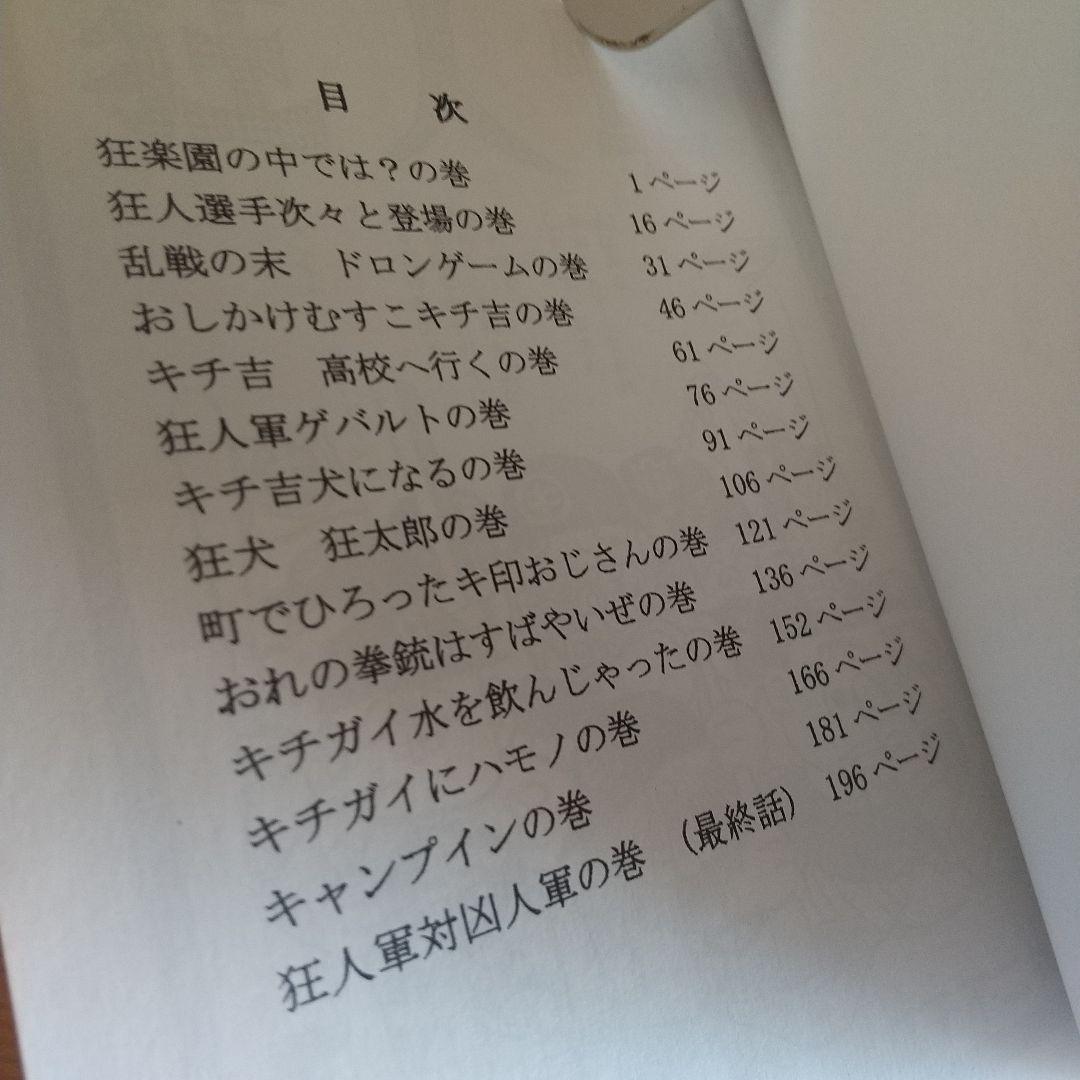 目　次
狂楽園の中では？の巻　1ページ
狂人選手次々と登場の巻　16ページ
乱戦の末　ドロンゲームの巻　31ページ
おしかけむすこキチ吉の巻　46ページ
キチ吉　高校へ行くの巻　61ページ
狂人軍ゲバルトの巻　76ページ
キチ吉犬になるの巻　91ページ
狂犬　狂太郎の巻　106ページ
町でひろったキ印おじさんの巻　121ページ
おれの拳銃はすばやいぜの巻　136ページ
キチガイ水を飲んじゃったの巻　152ページ
キチガイにハモノの巻　166ページ
キャンプインの巻　181ページ
狂人軍対凶人軍の巻　(最終話)　196ページ